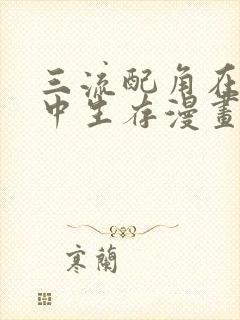 三流配角在
中生存漫畫
寒蘭